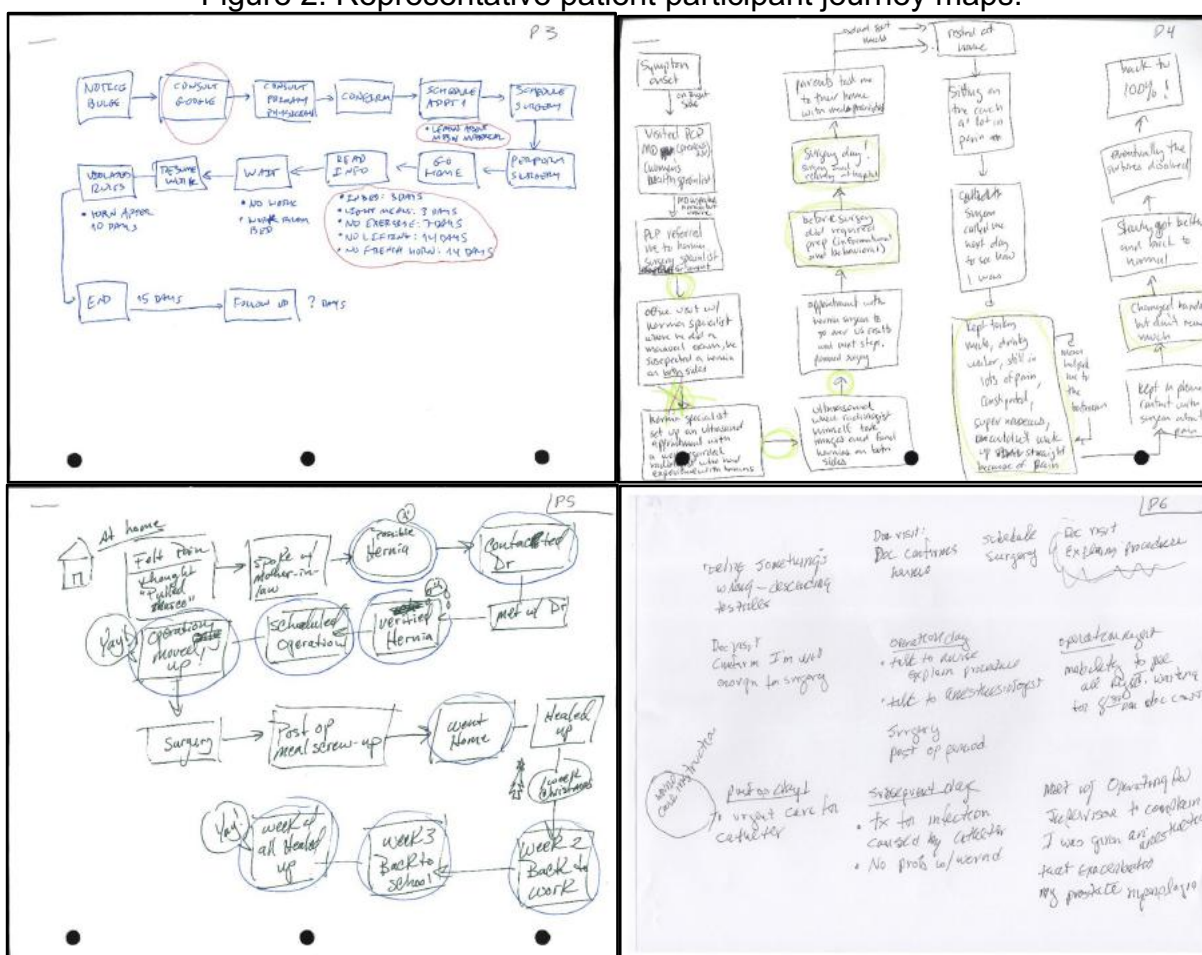 Figure 2. Representative patient participant journey maps.
P3
NOTICE
BULGE
CONSULT
GOOGLE
CONSULT
PRIMARY
PHYSICIAN
CONFIRM
SCHEDULE
APPT 1
• LEARN ABOUT
MESH MATERIAL
SCHEDULE
SURGERY
PERFORM
SURGERY
GO
HOME
READ
INFO
• IN BED: 3 DAYS
• LIGHT MEALS: 3 DAYS
• NO EXERCISE: 7 DAYS
• NO LIFTING: 14 DAYS
• NO FRENCH HORN: 14 DAYS
WAIT
• NO WORK
• WORK FROM
BED
RESUME
WORK
VIOLATED
RULES
• HORN AFTER
10 DAYS
END
15 DAYS
FOLLOW UP
? DAYS
P4
Symptom
onset
on right
side
Visited PCP
MD
(womens
health specialist
PCP referred
me to hernia
surgery specialist
office visit w/
hernia specialist
where he did a
manual exam, he
suspected a hernia
on both sides
hernia specialist
set up an ultrasound
appointment with
a
radiologist who had
experience with hernias
ultrasound
where radiologist
himself took
images and found
hernias on both
sides
appointment with
hernia surgeon to
go over US results
and next steps,
planned surgery
before surgery
did required
prep (informational
and behavioral)
Surgery day!
surgery and
recovery at hospital
parents took me
to their home
with meds prescribed
rested at
home
Sitting on
the couch
a lot in
pain
Surgeon
called me
next day
to see how
I was
Kept taking
meds, drinking
water, still in
lots of pain,
constipated,
super nauseous,
walk
up straight
because of pain
mom
helped
me to
the
bathroom
Kept in phone
contact with
surgeon about
pain
Changed
but didn't
much
Slowly got better
and back to
normal
eventually the
sutures dissolved
back to
100%!
P5
At home
Felt Pain
thought
"Pulled
Muscle"
Spoke w/
Mother-in-
law
Possible
Hernia
Contacted
Dr
Met w/ Dr
verified
Hernia
Scheduled
Operation
Operation
moved
up!
Yay!
Surgery
Post op
meal screw-up
Went
Home
Healed
up
1 week
Christmas
Week 2
Back to
work
Week 3
Back to
school
Week 4
all Healed
up
Yay!
P6
Something's
wrong – descending
testicles
Doc visit:
Doc confirms
hernia
schedule
surgery
Doc visit
Explain procedure
Doc visit
Confirm I'm well
enough for surgery
operation day
• talk to nurse
explain procedure
• talk to anesthesiologist
Surgery
post op period
operation night
to pee
all night. waiting
for
care instruction
post op day 1
to urgent care for
catheter
subsequent day
• tx for infection
caused by catheter
• No prob w/ wound
Meet w/ Operating Rm
Supervisor to complain
I was given an anesthetic
that exacerbated
my prostate